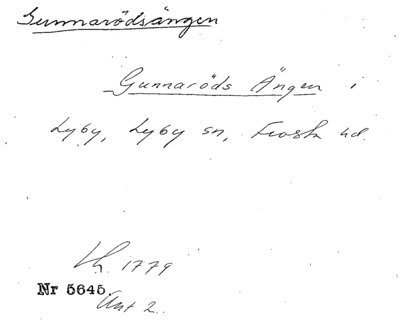 Gunnarödsängen
Gunnaröds Ängen i
Lyby, Lyby sn, Frosta hd.
Lh. 1779
Nr 5645.
Akt 2.